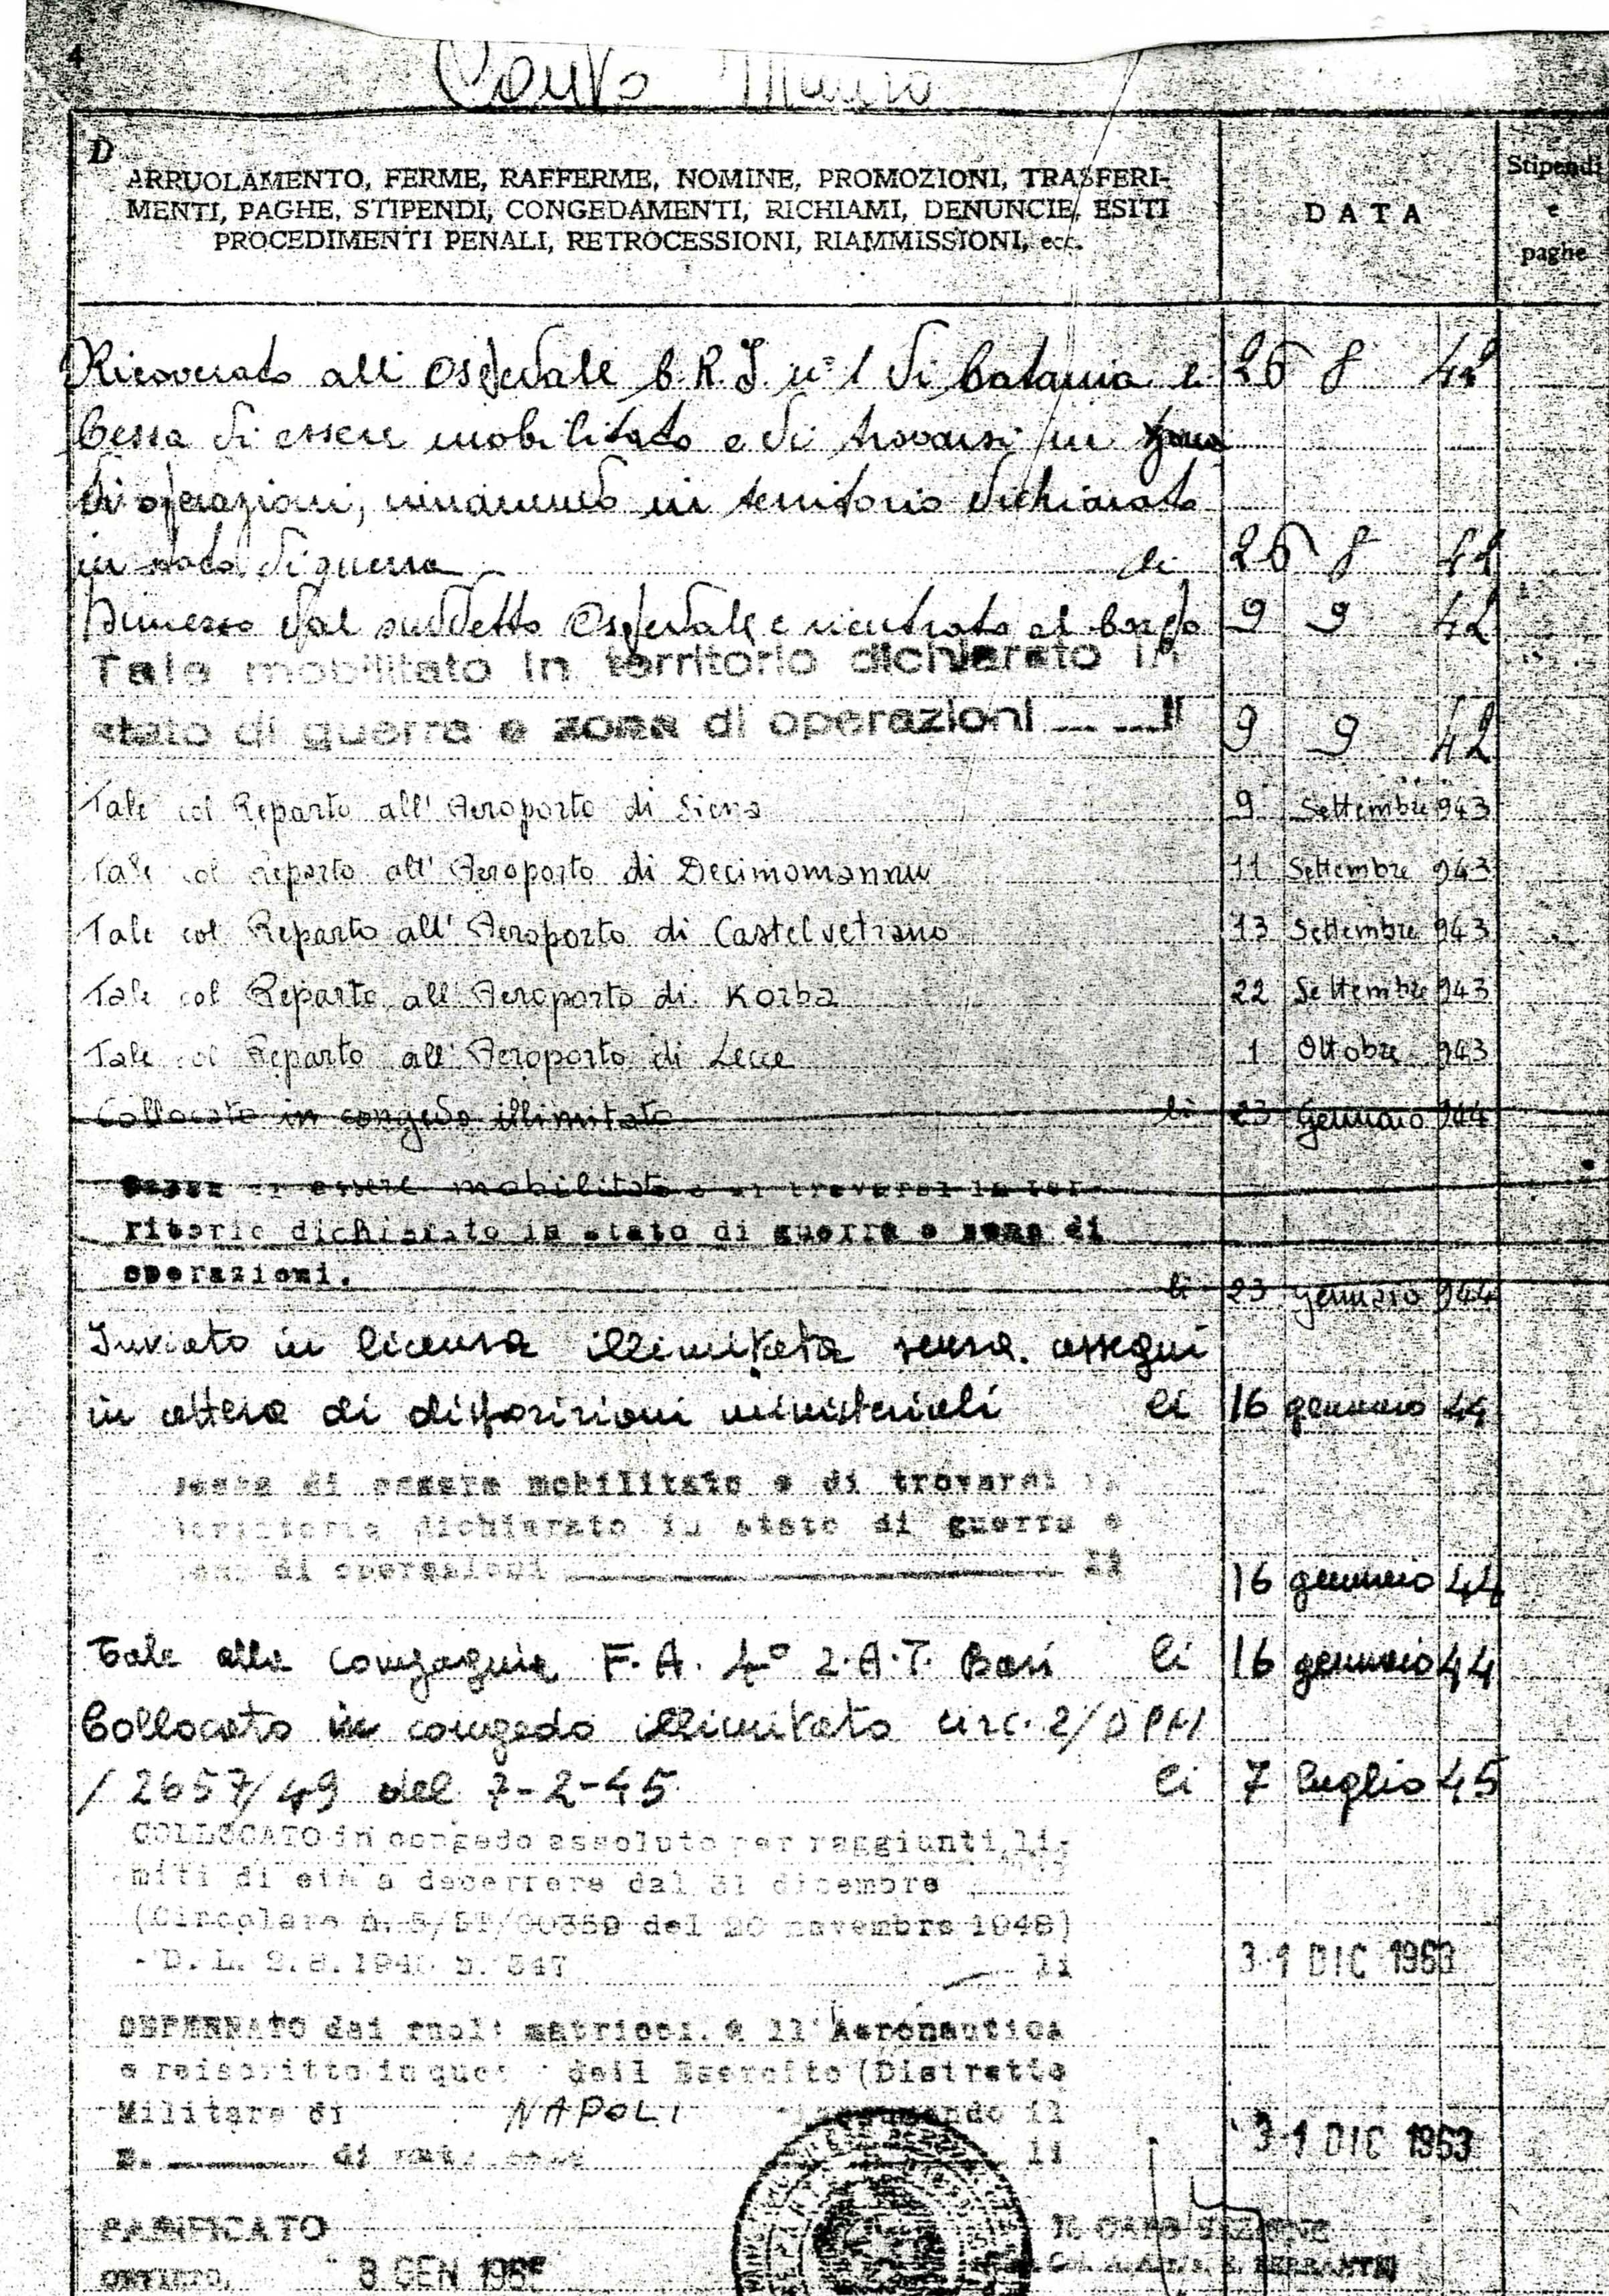 4
D
ARRUOLAMENTO, FERME, RAFFERME, NOMINE, PROMOZIONI, TRASFERI-
MENTI, PAGHE, STIPENDI, CONGEDAMENTI, RICHIAMI, DENUNCIE, ESITI
PROCEDIMENTI PENALI, RETROCESSIONI, RIAMMISSIONI, ecc.
DATA
Stipendi
e
paghe
Ricoverato all'Ospedale C.R.I. n° 1 di Catania li 26 8 42
Cessa di essere mobilitato e di trovarsi in zona
di operazioni, rimanendo in territorio dichiarato
in stato di guerra li 26 8 42
Dimesso dal suddetto Ospedale e rientrato al Corpo 9 9 42
Tale mobilitato in territorio dichiarato in
stato di guerra e zona di operazioni li 9 9 42
Tale col Reparto all'Aeroporto di Siena 9 Settembre 943
Tale col Reparto all'Aeroporto di Decimomannu 11 Settembre 943
Tale col Reparto all'Aeroporto di Castelvetrano 13 Settembre 943
Tale col Reparto all'Aeroporto di Korba 22 Settembre 943
Tale col Reparto all'Aeroporto di Lecce 1 Ottobre 943
Collocato in congedo illimitato li 23 Gennaio 944
Cessa di essere mobilitato e di trovarsi in ter-
ritorio dichiarato in stato di guerra e zona di
operazioni. li 23 gennaio 944
Inviato in licenza illimitata senza assegni
in attesa di disposizioni ministeriali li 16 gennaio 44
Cessa di essere mobilitato e di trovarsi in
territorio dichiarato in stato di guerra e
zona di operazioni li 16 gennaio 44
Tale alla Compagnia F.A. 4° Z.A.T. Bari li 16 gennaio 44
Collocato in congedo illimitato circ. 2/DPM
/2657/49 del 7-2-45 li 7 luglio 45
COLLOCATO in congedo assoluto per raggiunti li-
miti di età a decorrere dal 31 dicembre
(Circolare n. 5/ST/00359 del 20 novembre 1948)
- D.L. 1948 n. 547 li 31 DIC 1953
DEPENNATO dai ruoli matricol. 11'Aeronautica
e reiscritto in que dell Esercito (Distretto
Militare di NAPOLI il
n. di mat. li 31 DIC 1953
PARIFICATO
8 GEN 195
IL CAPO SEZIONE